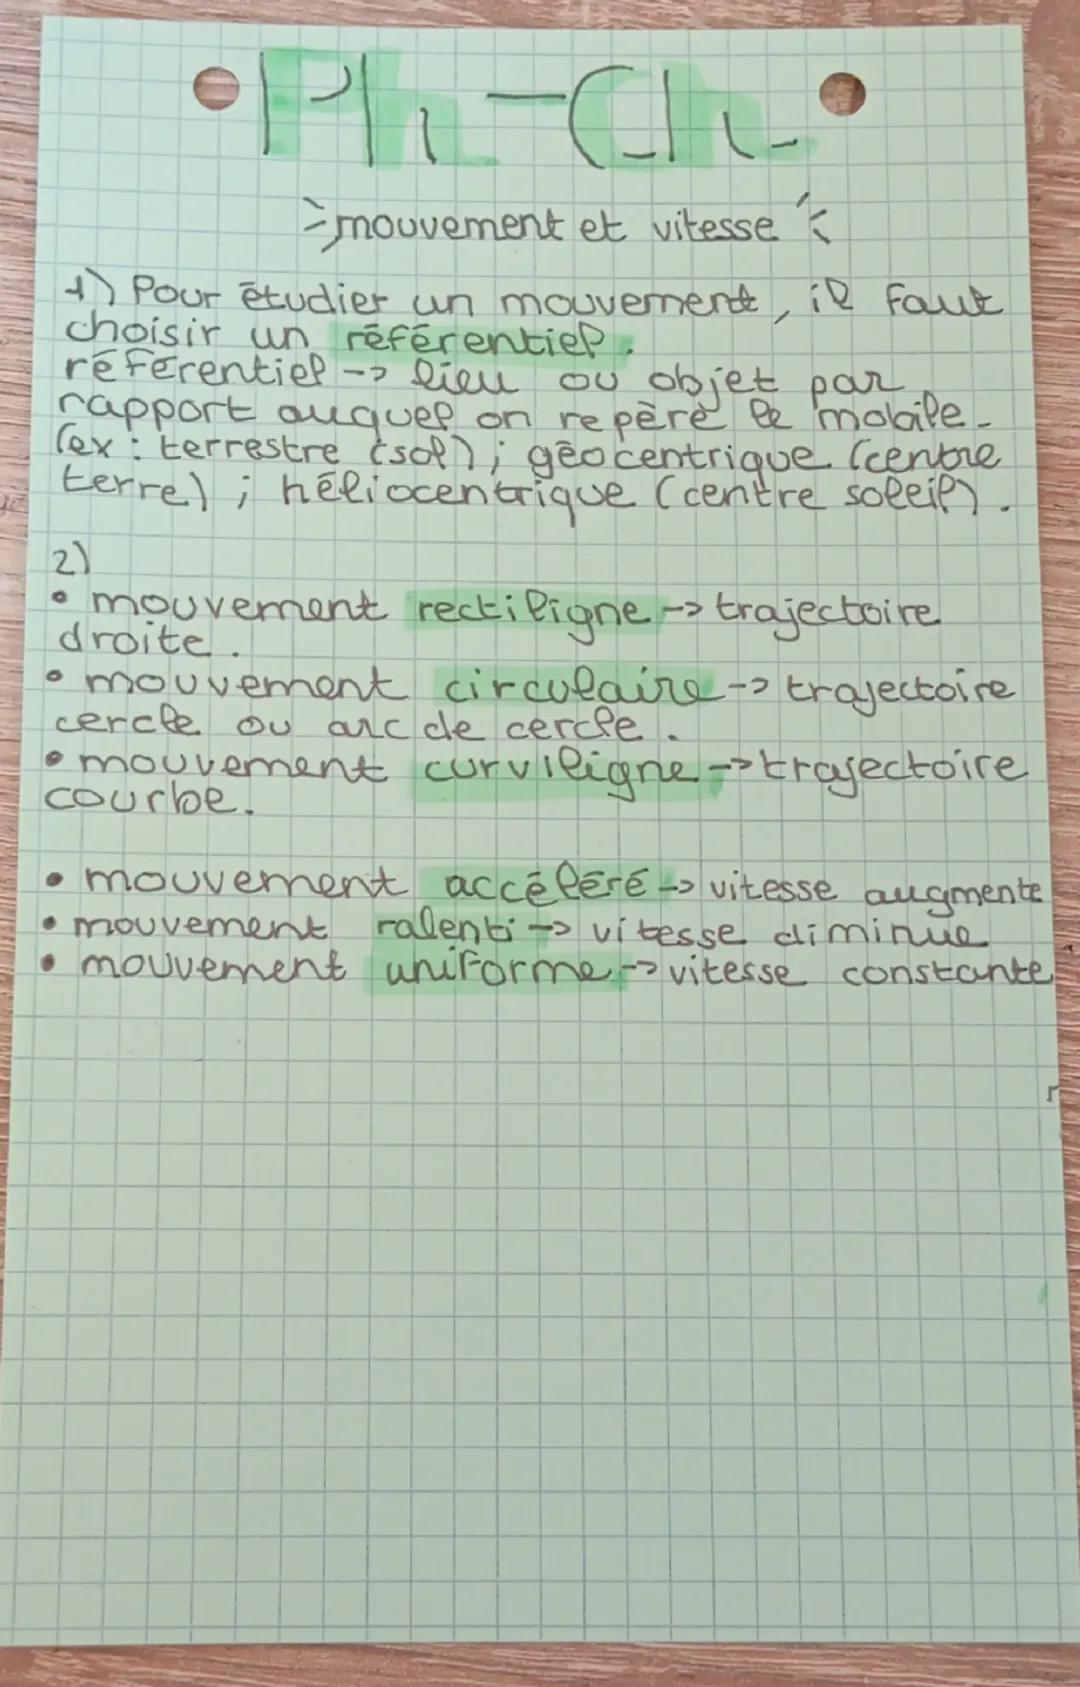 Ph-Ch
mouvement et vitesse
1) Pour étudier un mouvement, il faut
choisir un référentiel.
référentiel -> lieu ou objet par
rapport auquel on repère le mobile.
(ex : terrestre (sol) ; géocentrique (centre
terre) ; héliocentrique (centre soleil).
2)
• mouvement rectiligne -> trajectoire
droite.
• mouvement circulaire -> trajectoire
cercle ou arc de cercle.
• mouvement curviligne -> trajectoire
courbe.
• mouvement accéléré -> vitesse augmente
• mouvement ralenti -> vitesse diminue
• mouvement uniforme -> vitesse constante